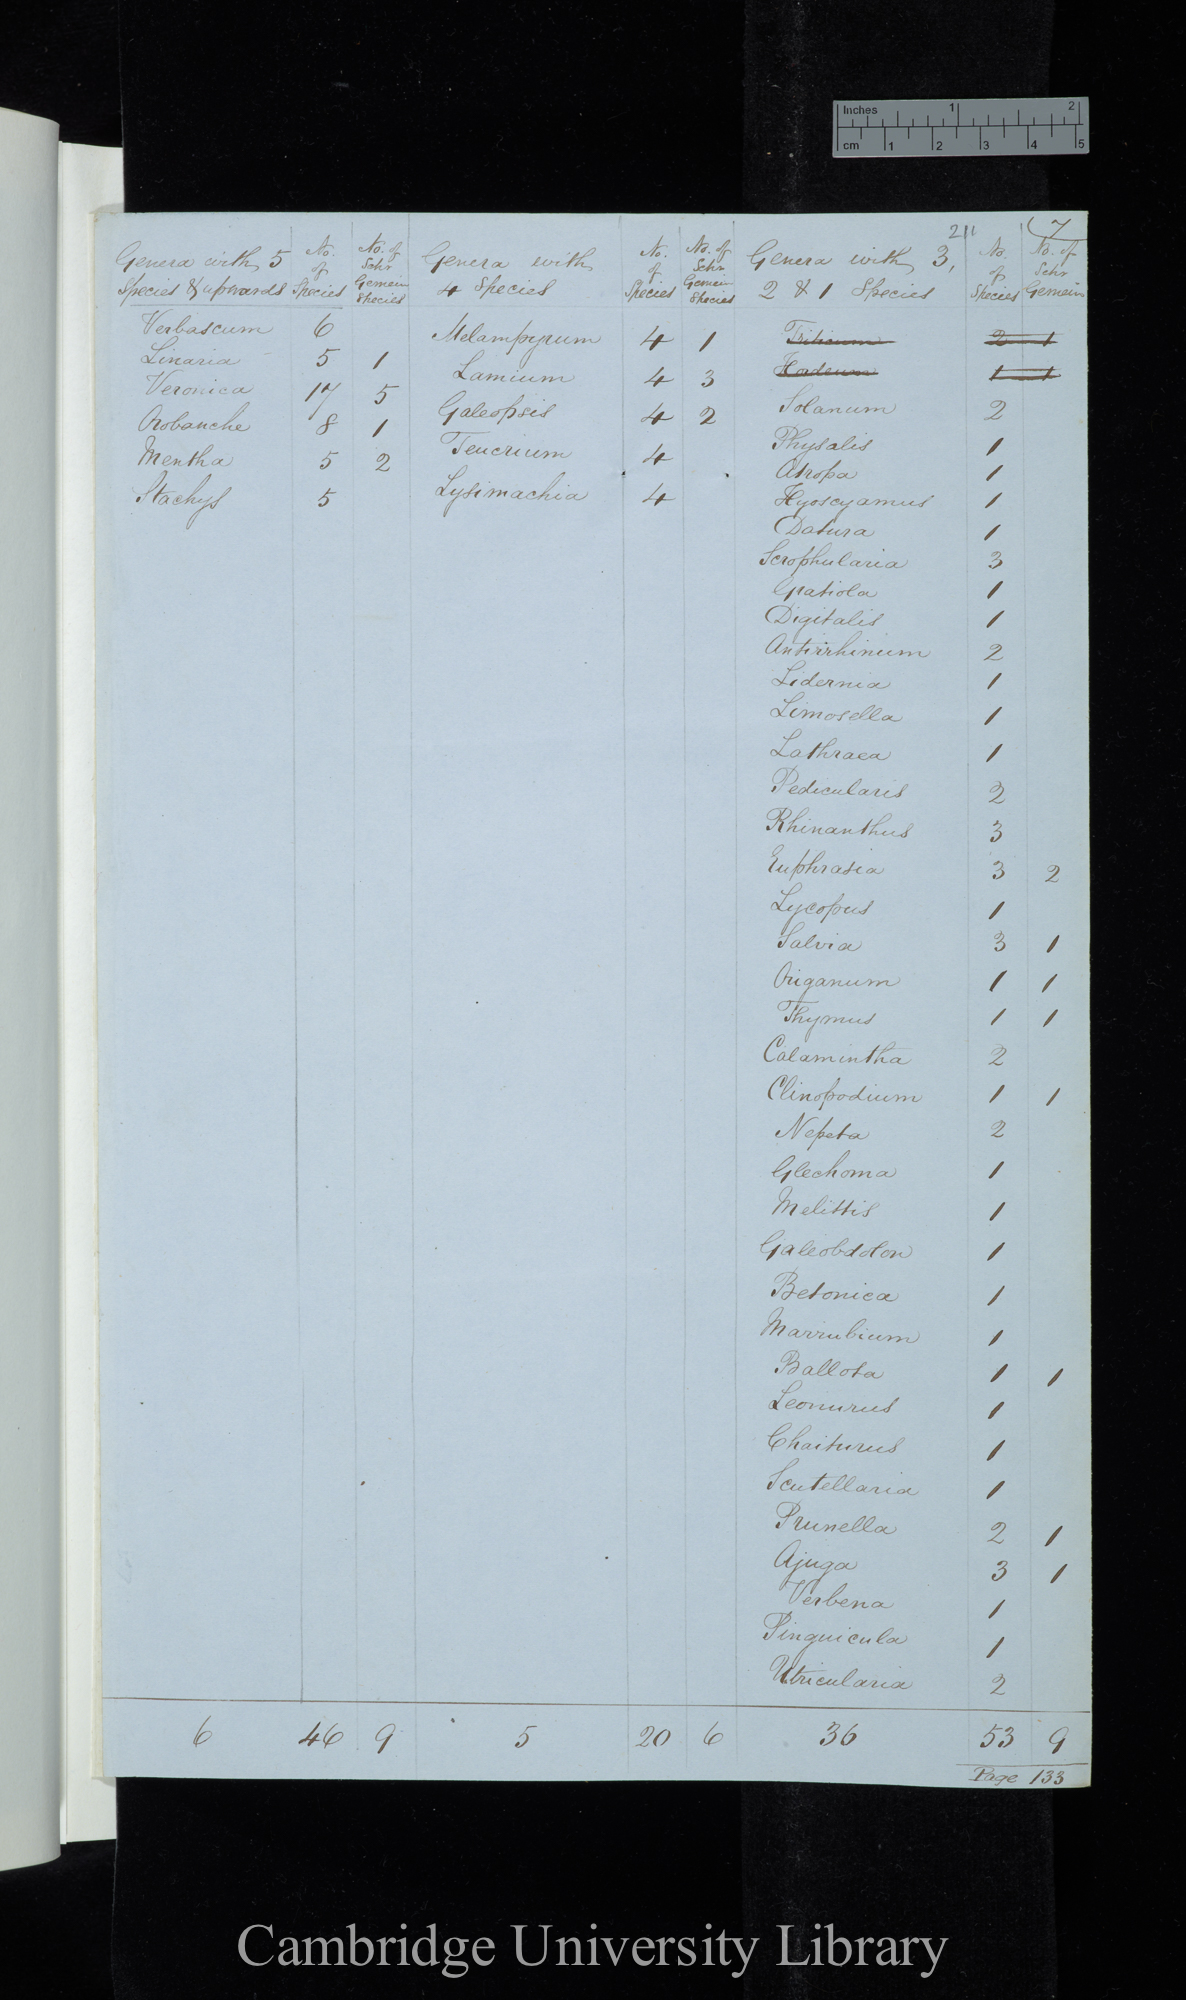 Inches 1 2
cm 1 2 3 4 5
211
7
Genera with 5 Species & upwards | No. of Species | No. of Sehr Gemein Species | Genera with 4 Species | No. of Species | No. of Sehr Gemein Species | Genera with 3, 2 & 1 Species | No. of Species | No. of Sehr Gemein
Verbascum 6
Linaria 5 1
Veronica 17 5
Orobanche 8 1
Mentha 5 2
Stachys 5
6 46 9
Melampyrum 4 1
Lamium 4 3
Galeopsis 4 2
Teucrium 4
Lysimachia 4
5 20 6
Triticum 2 1
Hordeum 1 1
Solanum 2
Physalis 1
Atropa 1
Hyoscyamus 1
Datura 1
Scrophularia 3
Gratiola 1
Digitalis 1
Antirrhinum 2
Lidernia 1
Limosella 1
Lathraea 1
Pedicularis 2
Rhinanthus 3
Euphrasia 3 2
Lycopus 1
Salvia 3 1
Origanum 1 1
Thymus 1 1
Calamintha 2
Clinopodium 1 1
Nepeta 2
Glechoma 1
Melittis 1
Galeobdolon 1
Betonica 1
Marrubium 1
Ballota 1 1
Leonurus 1
Chaiturus 1
Scutellaria 1
Prunella 2 1
Ajuga 3 1
Verbena 1
Pinguicula 1
Utricularia 2
36 53 9
Page 133
Cambridge University Library